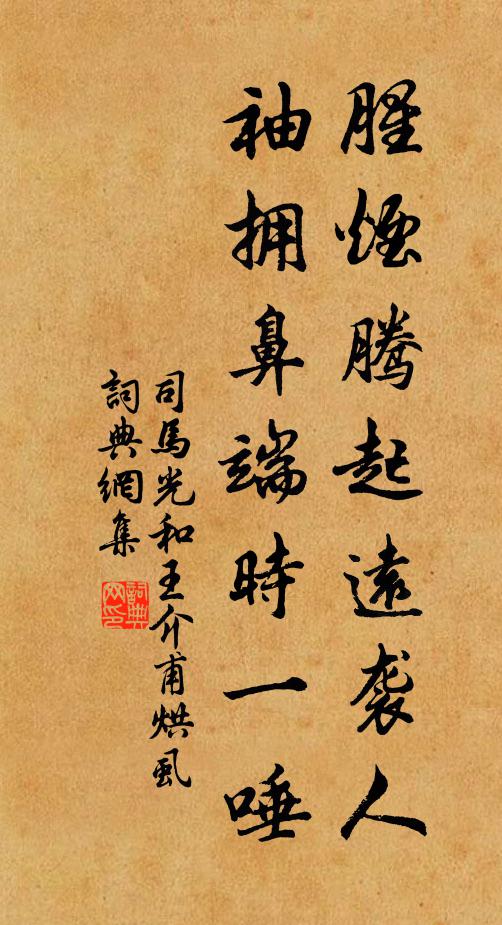 腥煙騰起遠袭人
袖拥鼻端時一唾
司馬光和王介甫烘虱
詞典網集
詞典
网印